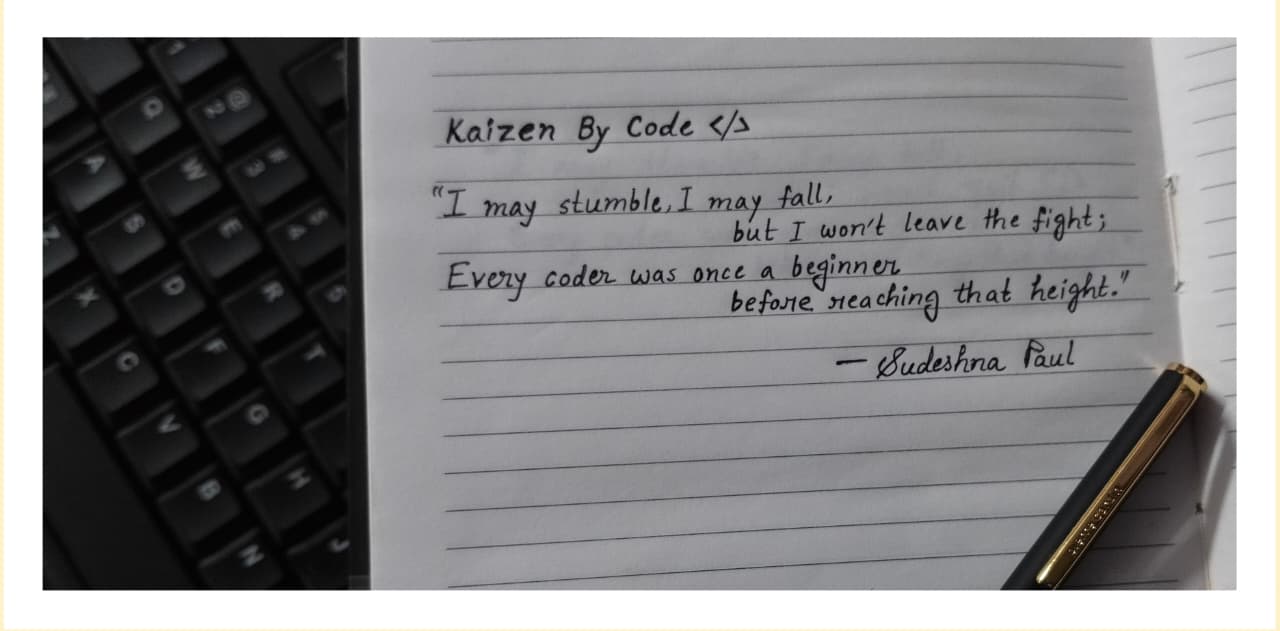 Kaizen By Code </>
"I may stumble, I may fall,
but I won't leave the fight;
Every coder was once a beginner
before reaching that height."
— Sudeshna Paul
@ 2
# 3
$ 4
5
Q
W
E
R
T
A
S
D
F
G
H
J
Z
X
C
V
B
N